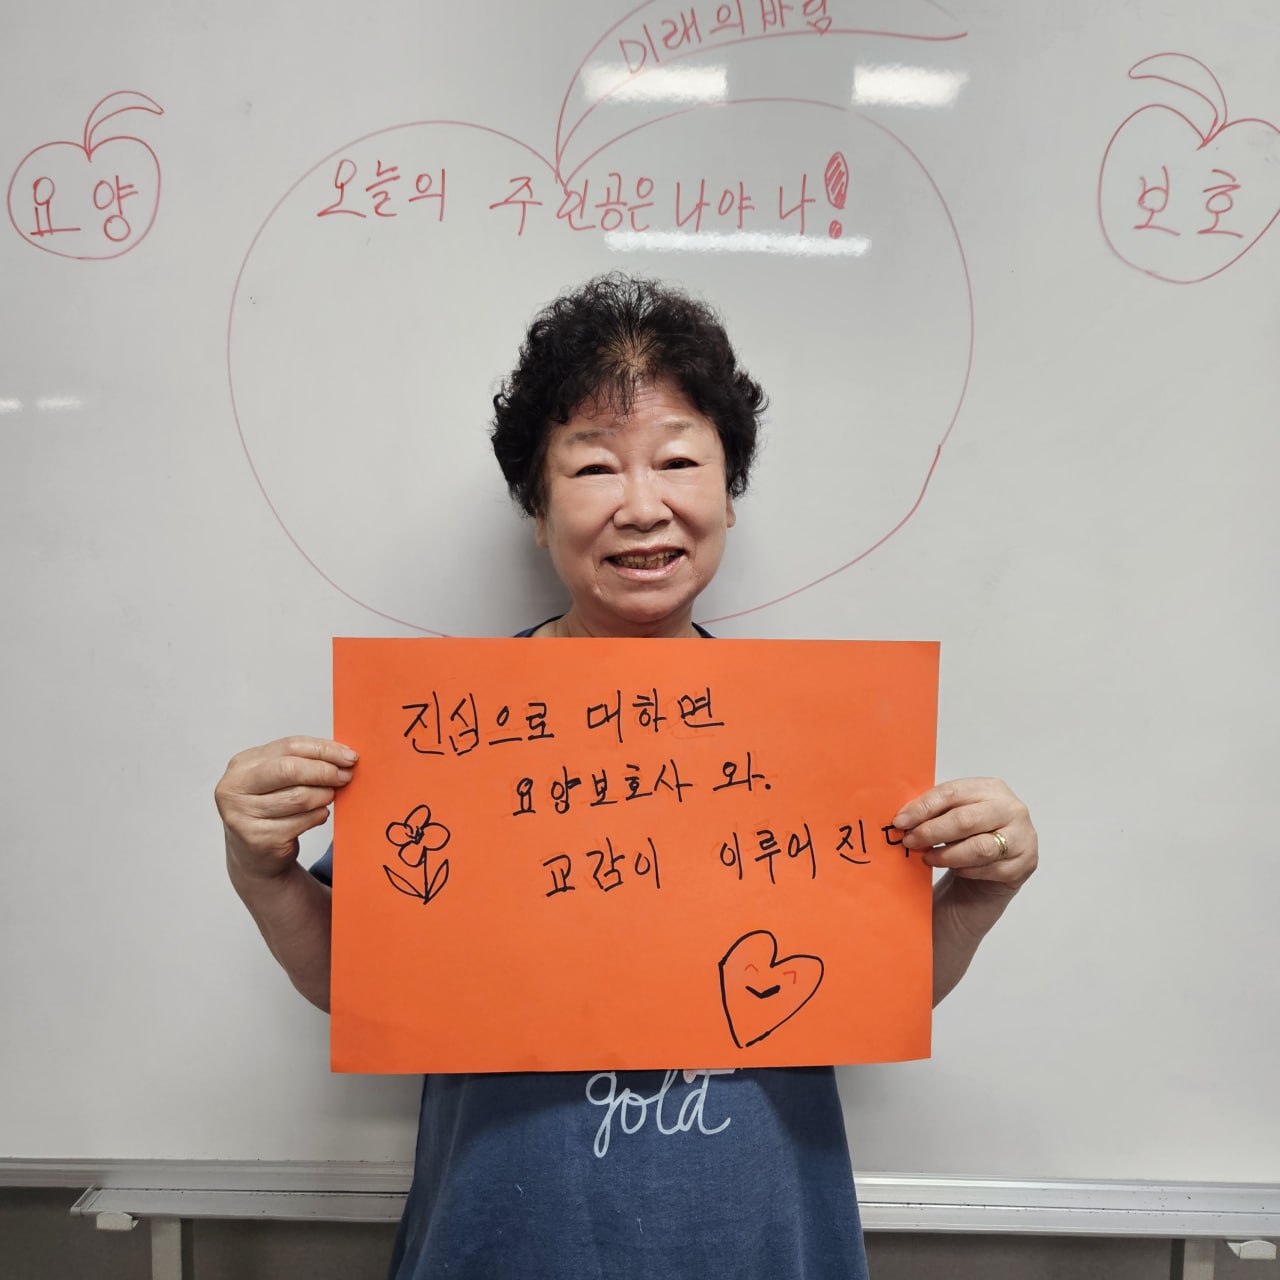 미래의 바람
요양
오늘의 주인공은 나야 나!
보호
진심으로 대하면
요양보호사 와.
교감이 이루어 진다
gold